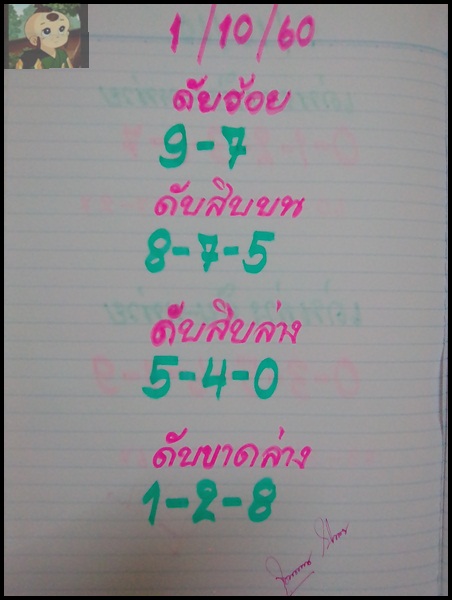 1/10/60
ดับร้อย
9-7
ดับสิบบน
8-7-5
ดับสิบล่าง
5-4-0
ดับขาดล่าง
1-2-8